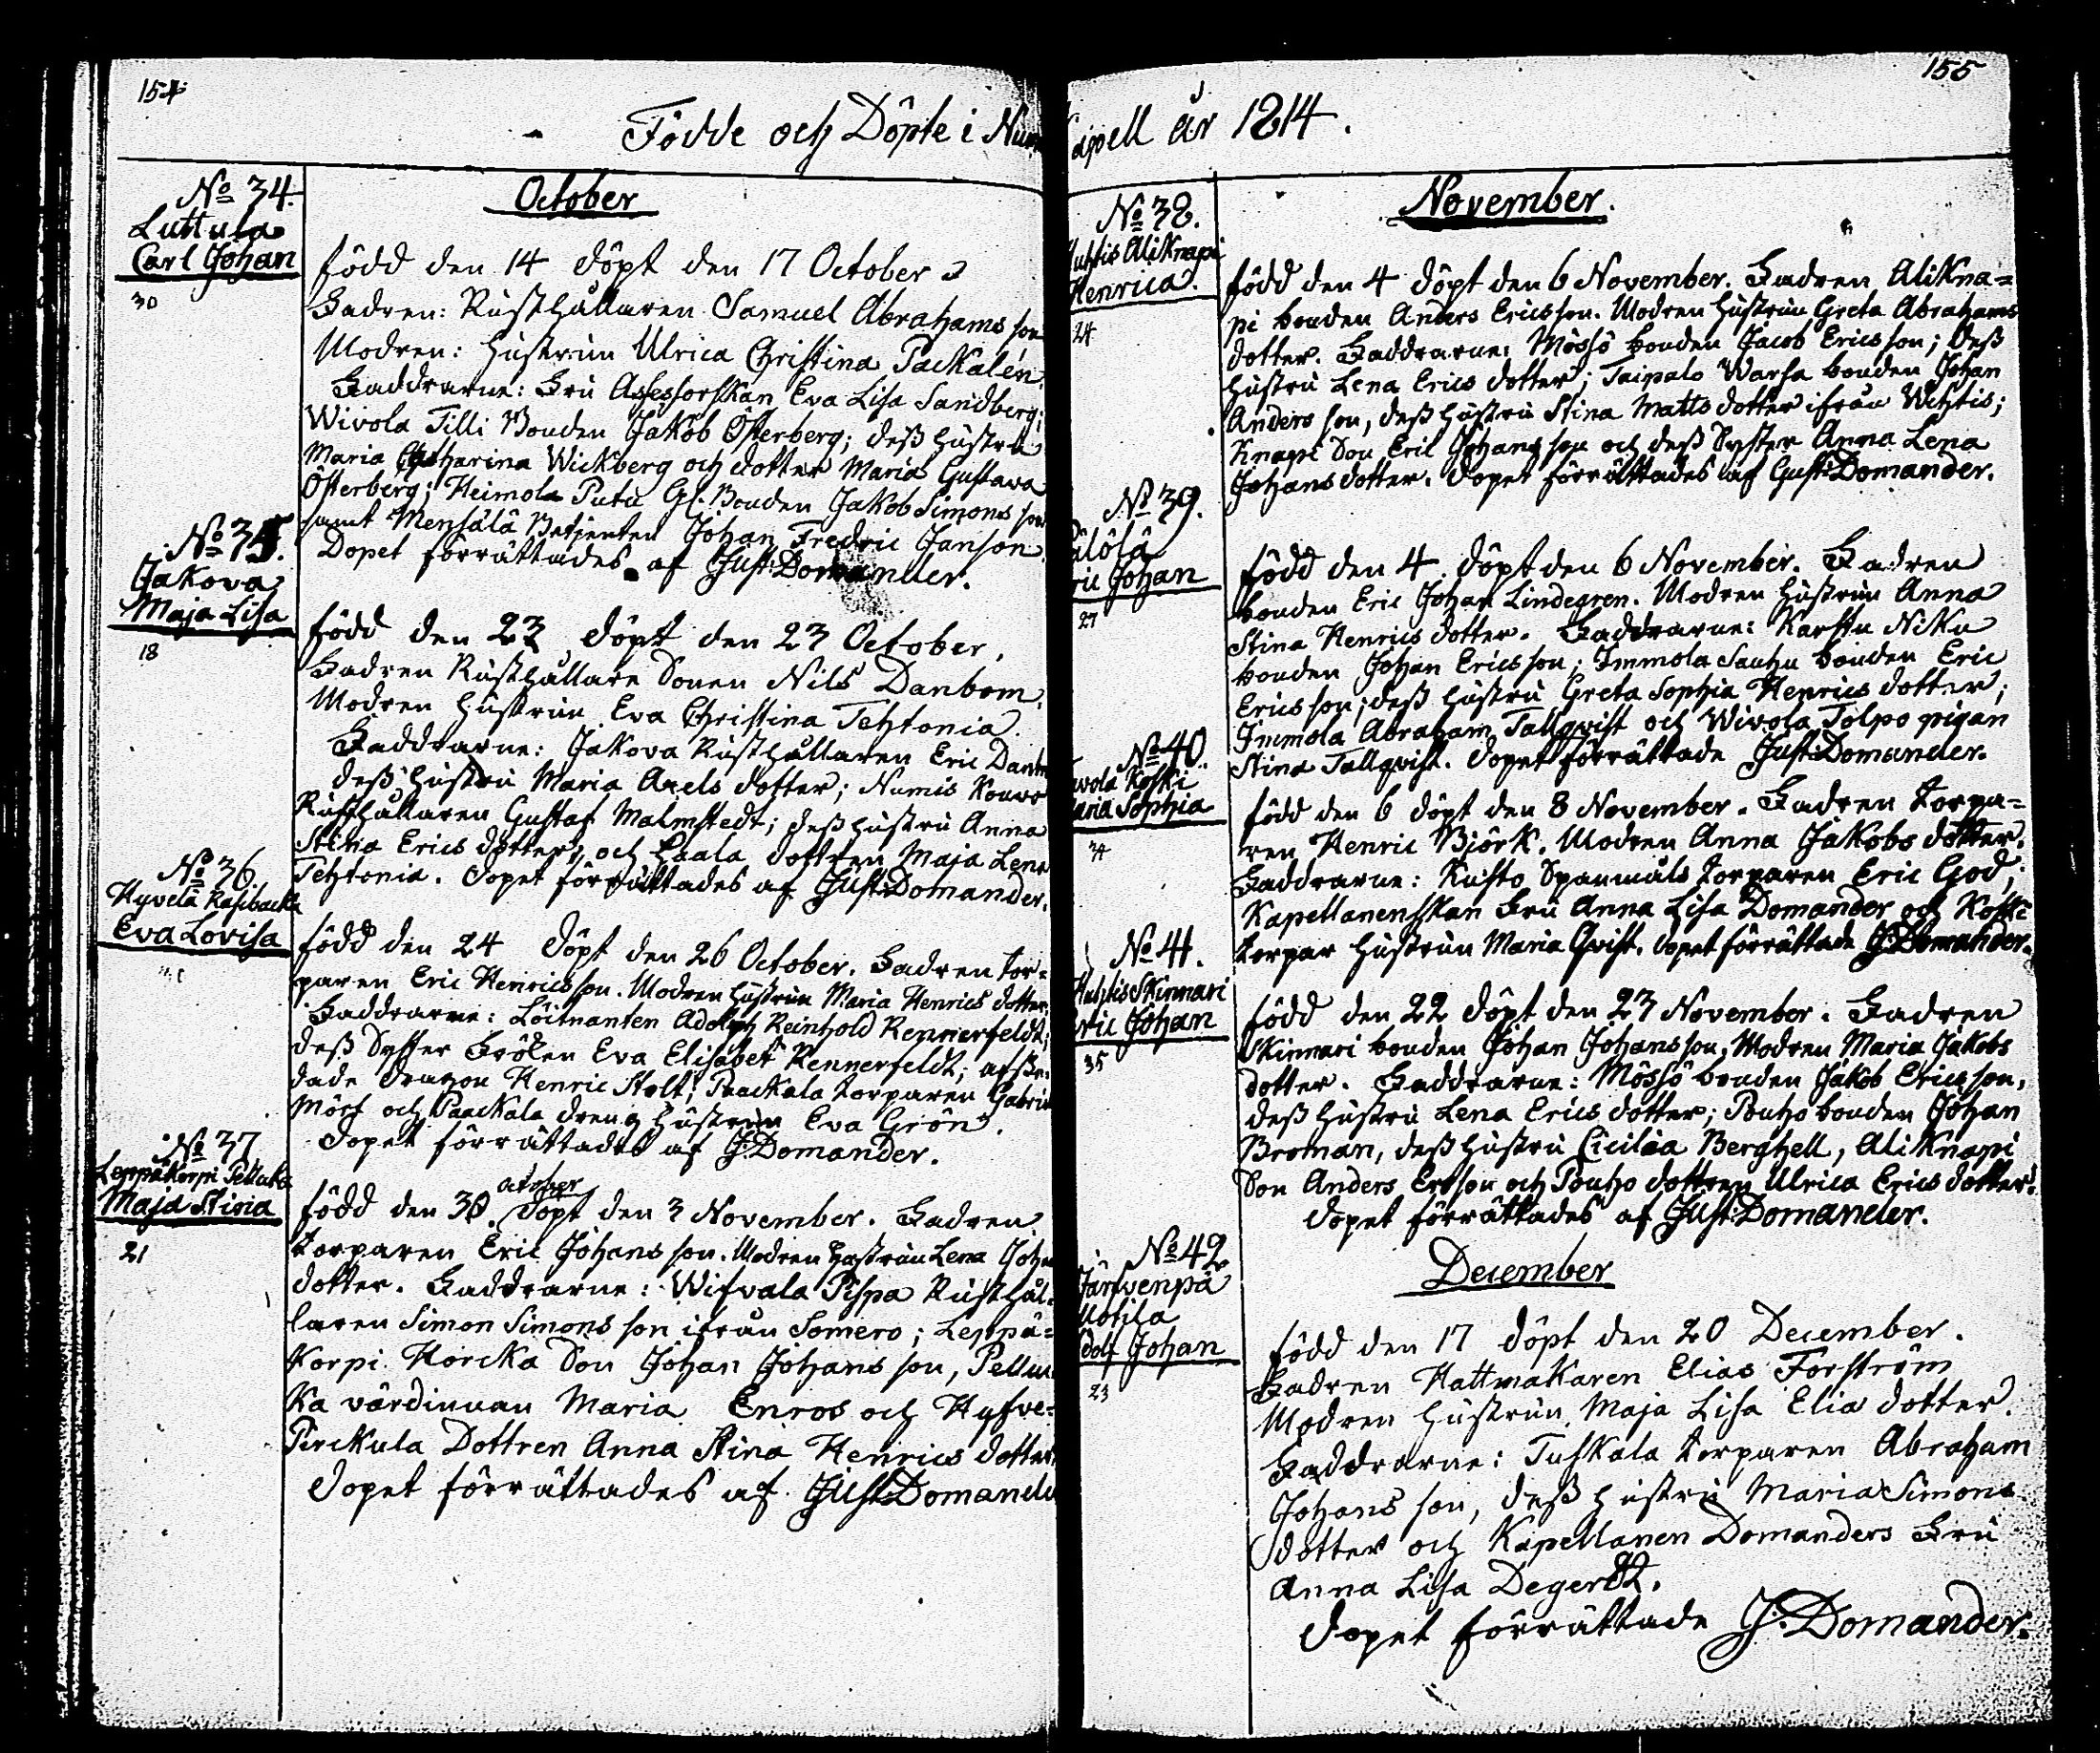 154
Födde och Döpte i Num
October
No 34.
Luttula
Carl Johan
30
född den 14 döpt den 17 October
Fadren: Rusthållaren Samuel Abrahams son
Modren: hustrun Ulrica Christina Packalén.
Faddrarne: Fru Assessorskan Eva Lisa Sandberg;
Wivola Tilli Bonden Jakob Österberg; dess hustru
Maria Catharina Wickberg och dotter Maria Gustava
Österberg; Heimola Putu Gl. Bonden Jakob Simons son
samt Mensälä Betjenten Johan Fredric Janson.
Dopet förrättades af Gust: Domander.
No 35.
Jakova
Maja Lisa
18
född den 23 döpt den 23 October.
Fadren Rusthållare Sonen Nils Danbom.
Modren hustrun Eva Christina Tehtonia.
Faddrarne: Jakova Rusthållaren Eric Danbom
dess hustru Maria Axels dotter; Numis Kouvo
Rusthållaren Gustaf Malmstedt; dess hustru Anna
Stina Erics dotter, och Haala dottren Maja Lena
Tehtonia. dopet förrättades af Gust: Domander.
No 36
Hyvelä Rasibacka
Eva Lovisa
född den 24 döpt den 26 October. Fadren tor=
paren Eric Henrics son. Modren hustrun Maria Henrics dotter.
Faddrarne: Löitnanten Adolph Reinhold Rennerfeldt;
dess Syster Frölen Eva Elisabet Rennerfeldt; afske=
dade dragon Henric Stolt; Paackala torparen Gabriel
Mört och Paackala dreng hustrun Eva Grön.
dopet förrättades af G: Domander.
No 37
Leppäkorpi Pelluka
Maja Stina
21
october
född den 30. döpt den 3 November. Fadren
torparen Eric Johans son. Modren hustrun Lena Johans
dotter. Faddrarne: Wifvala Pispa Rusthål=
laren Simon Simons son ifrån Somero; Leppä=
korpi Horcka Son Johan Johans son, Pellu
ka värdinnan Maria Enros och Hyfve=
Pirckula Dottren Anna Stina Henrics dotter.
dopet förrättades af Gust: Domander
155
Capell år 1814.
November.
No 38.
Huhtis Aliknapi
Henrica.
24
född den 4 döpt den 6 November. Fadren Alikna=
pi bonden Anders Erics son. Modren hustrun Greta Abrahams
dotter. Faddrarne: Mössö bonden Jacob Erics son; dess
hustru Lena Erics dotter; Taipalo Warsa bonden Johan
Anders son, dess hustru Stina Matts dotter ifrån Wihtis;
Knapi Son Eric Johans son och dess Syster Anna Lena
Johans dotter. dopet förrättades af Gust: Domander.
No 39.
älölä
ric Johan
27
född den 4 döpt den 6 November. Fadren
bonden Eric Johan Lindegren. Modren hustrun Anna
Stina Henrics dotter. Faddrarne: Karstu Niku
bonden Johan Erics son; Immola Sauhu bonden Eric
Erics son; dess hustru Greta Sophia Henrics dotter;
Immola Abraham Tallqvist och Wivola Tolpo pigan
Stina Tallqvist. dopet förrättade Gust: Domander.
No 40.
vola Koski
aria Sophia
34
född den 6 döpt den 8 November. Fadren torpa=
ren Henric Björk. Modren Anna Jakobs dotter.
Faddrarne: Kusto Spanmåls torparen Eric God;
Kapellanenskan Fru Anna Lisa Domander och Koski
torpar hustrun Maria Qvist. dopet förrättade G: Domander.
No 41.
Huhtis Skinnari
ric Johan
35
född den 22 döpt den 23 November. Fadren
Skinnari bonden Johan Johans son, Modren Maria Jakobs
dotter. Faddrarne: Mössö bonden Jakob Erics son,
dess hustru Lena Erics dotter; Pouho bonden Johan
Broman, dess hustru Cicilia Berghell, Aliknapi
Son Anders Ericson och Pouho dottren Ulrica Erics dotter.
dopet förrättades af Gust: Domander.
No 42
Järfvenpä
Uotila
dolf Johan
23
December
född den 17 döpt den 20 December.
Fadren Hattmakaren Elias Forström
Modren hustrun Maja Lisa Elia dotter.
Faddrarne: Tuskala torparen Abraham
Johans son, dess hustru Maria Simons
dotter och Kapellanen Domanders Fru
Anna Lisa Degerdt.
dopet förrättade G: Domander.